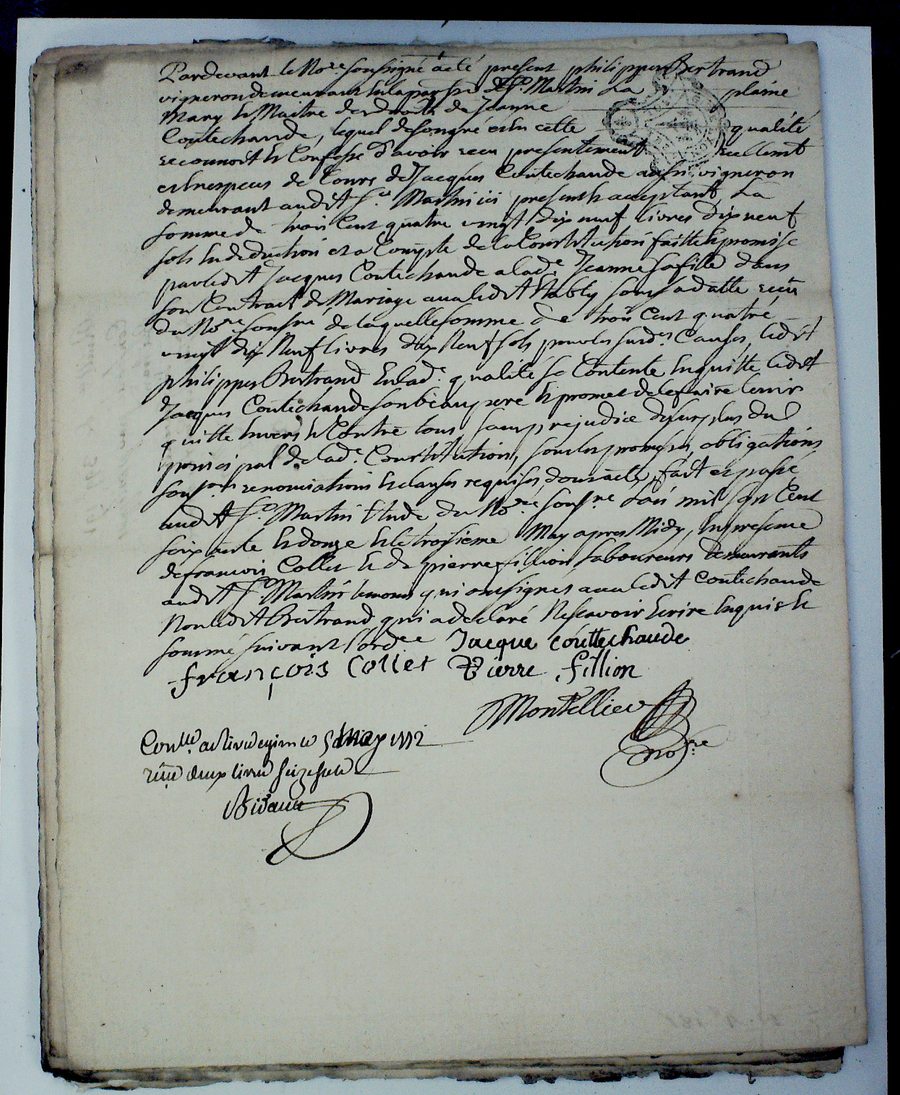 Pardevant le No.re soussigné a été present philippe Bertrand
vigneron demeurant en la paroisse St. Martin La plaine
Mary & Maitre des droits de Jeanne
Coutechaude, lequel de son gré et en cette qualité
reconnoit & Confesse d'avoir reçu presentement
et en especes de Cours de Jacques Coutechaude aussi vigneron
demeurant audit St. Martin ici present & acceptant La
somme de trois Cent quatre vingt dix neuf livres dix neuf
sols En deduction et a Compte de la Constitution faitte & promise
par ledit Jacques Coutechaude a lade. Jeanne sa fille dans
son Contract de Mariage avec ledit Etably sous sa datte reçu
du No.re sousne. de laquelle somme de trois Cent quatre
vingt dix Neuf livres dix Neuf sols pour les susdes. Causes, ledit
philippe Bertrand En lade. qualité se Contente En quitte ledit
Jacques Coutechaude son beau pere & promet de le faire tenir
quitte Envers & Contre tous sans prejudice du surplus du
principal de lade. Constitution, sous les promesses, obligations
renonciations & clauses requises fait et passé
audit St. Martin Etude du No.re sousne. L'an mil sept Cent
soixante & douze & le troisieme May apres Midy, En presence
de francois Collet & de pierre fillion laboureurs demeurants
audit St. Martin temoins qui ont signés avec ledit Coutechaude
Non ledit Bertrand qui a declaré Ne scavoir Ecrire Enquis &
sommé suivant l'ord.ce Jacque couttechaude
françois collet Pierre fillion
Montellier
No.re
Con.lle a Rive de gier le 5 May 1772
Reçu deux livres seize sols